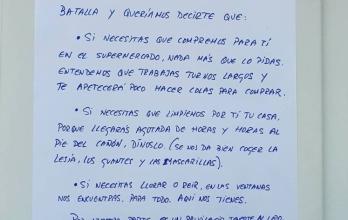 BATALLA Y QUERÍAMOS DECIRTE QUE:
• SI NECESITAS QUE COMPREMOS PARA TÍ
EN EL SUPERMERCADO, NADA MÁS QUE LO PIDAS.
ENTENDEMOS QUE TRABAJAS TURNOS LARGOS Y
TE APETECERÁ POCO HACER COLAS PARA COMPRAR.
• SI NECESITAS QUE LIMPIEMOS POR TI TU CASA,
PORQUE LLEGARÁS AGOTADA DE HORAS Y HORAS AL
PIE DEL CAÑÓN, DÍNOSLO. (SE NOS DA BIEN COGER LA
LEJÍA, LOS GUANTES Y LAS MASCARILLAS).
• SI NECESITAS LLORAR O REIR, EN LAS VENTANAS
NOS ENCUENTRAS, PARA TODO. AQUÍ NOS TIENES.
POR NUESTRA PARTE, ES UN PRIVILEGIO